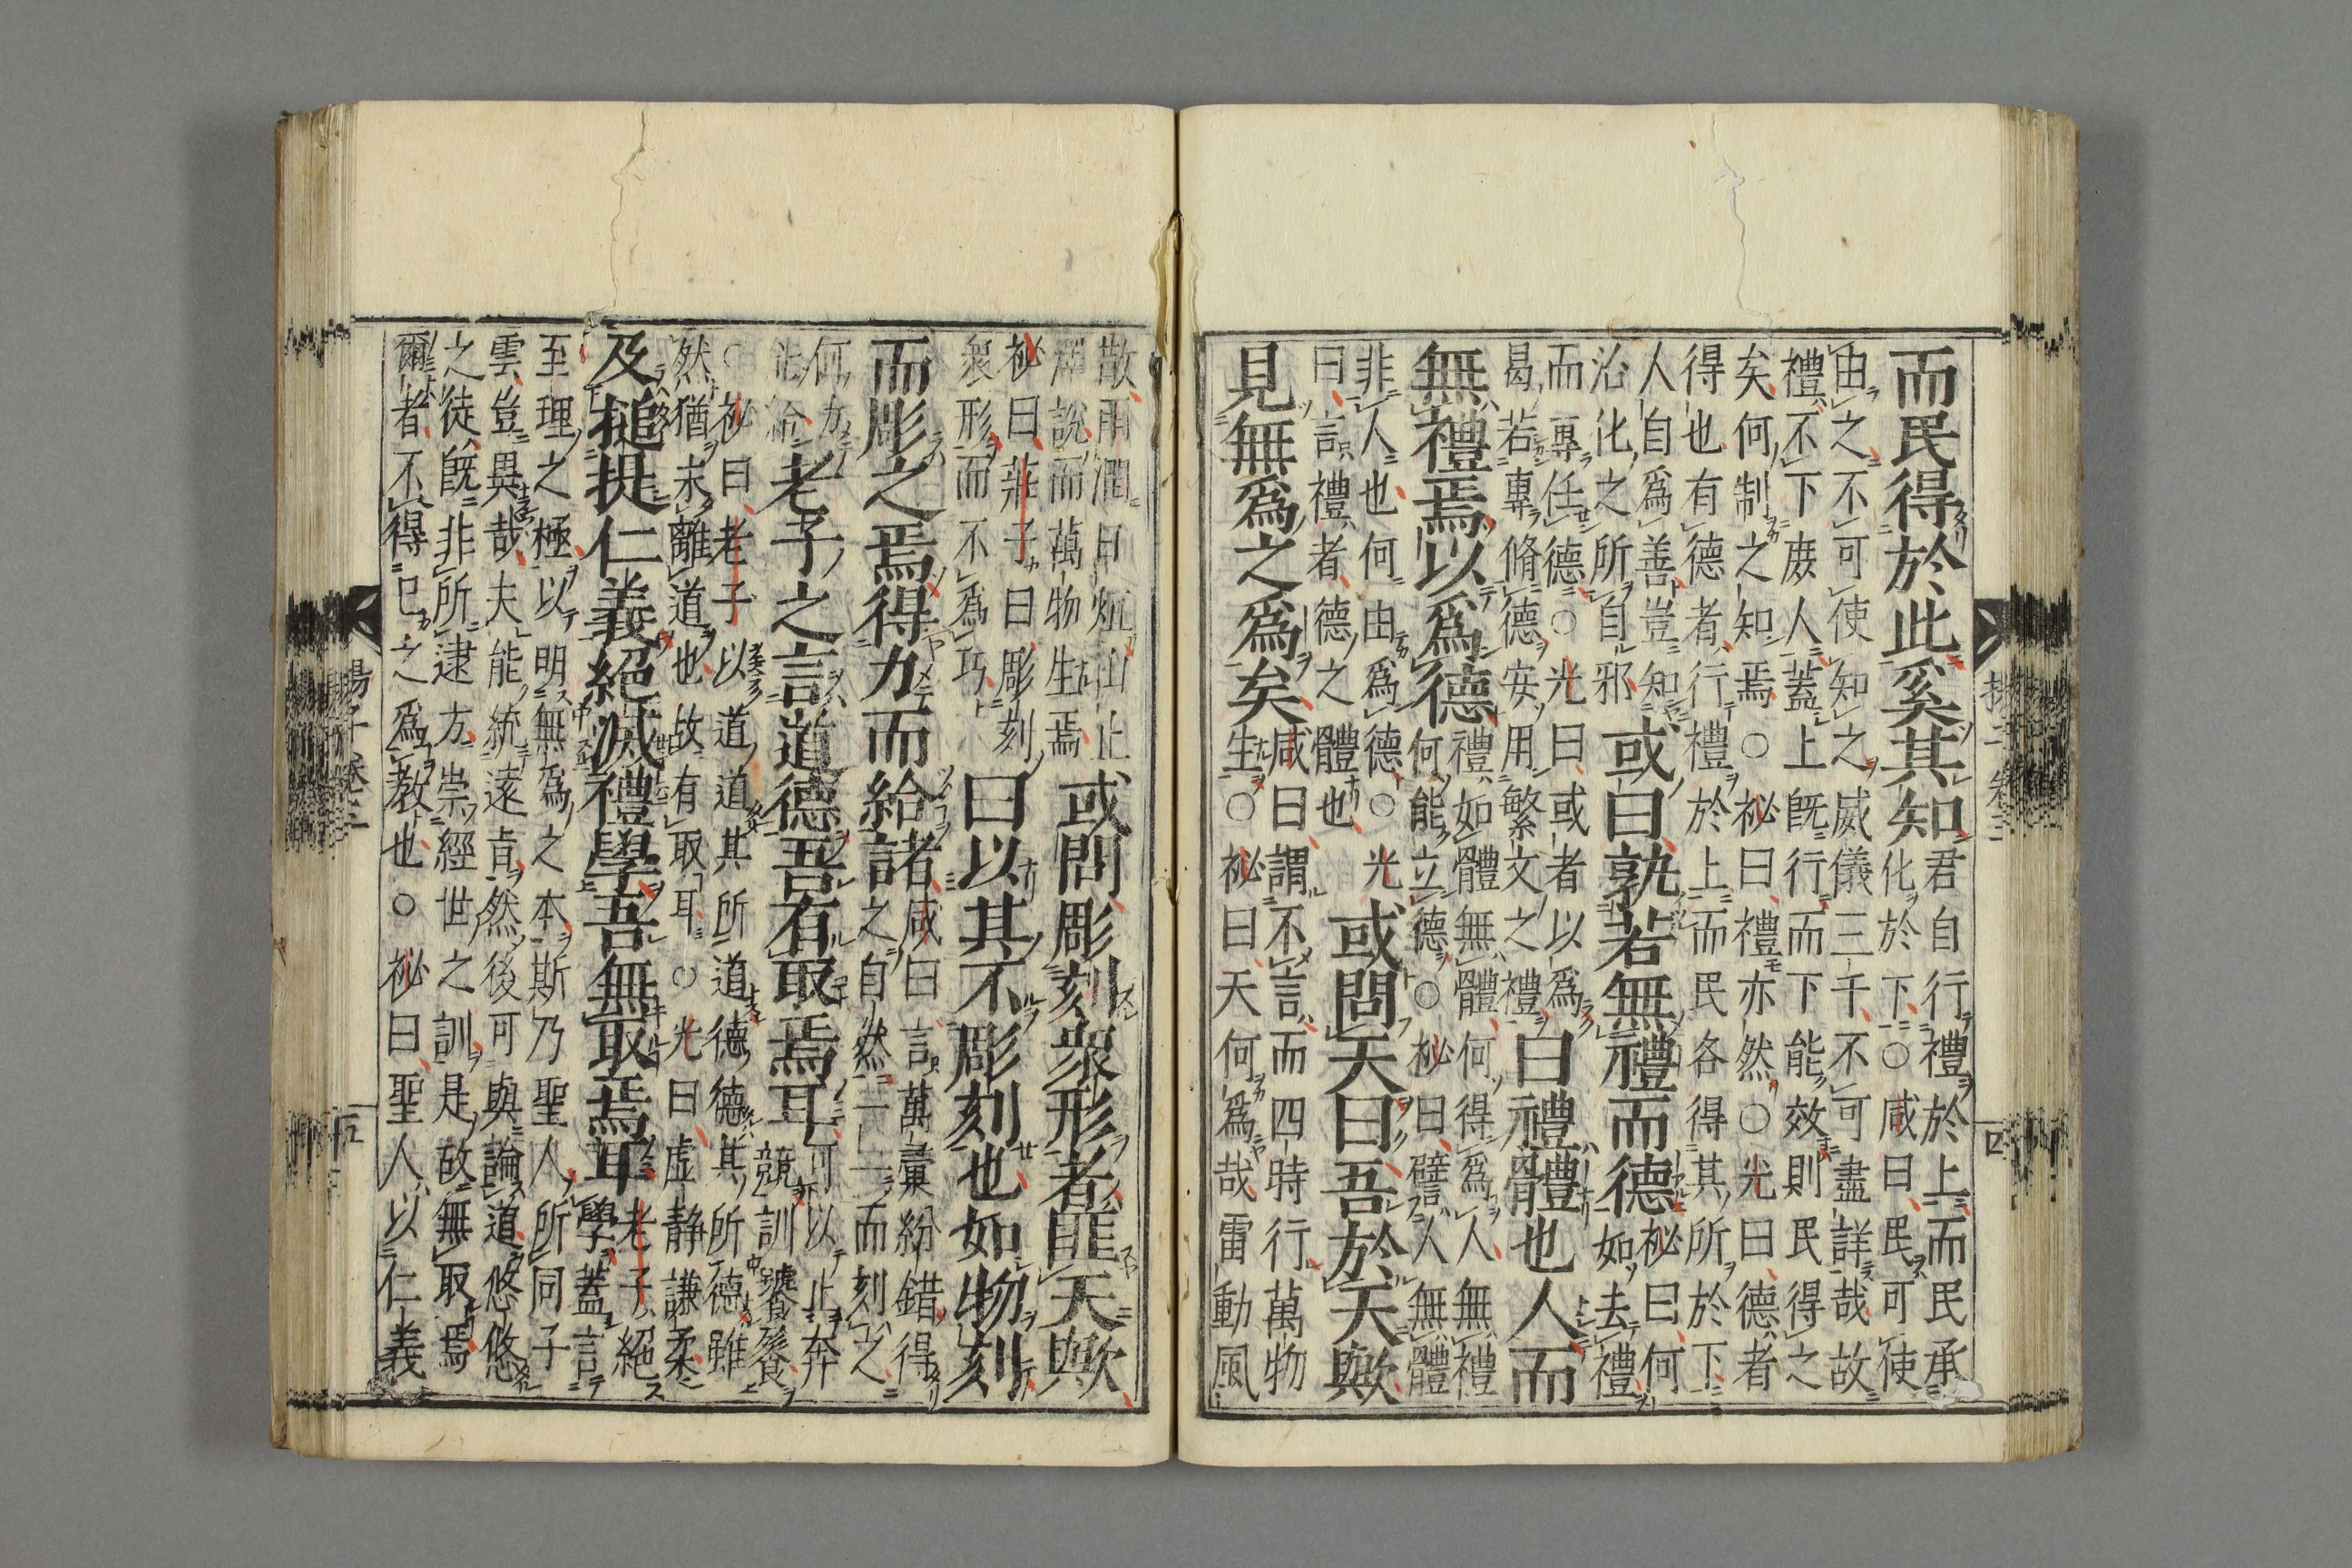 而民得於此奚其知君自行禮於上而民承
化於下○咸曰民可使
由之不可使知之威儀三千不可盡詳哉故
禮不下庶人蓋上旣行而下能效則民得之
矣何制之知焉○祕曰禮亦然○光曰德者
得也有德者行禮於上而民各得其所於下
人自爲善豈知
沿化之所自邪
或曰孰若無禮而德祕曰何
如去禮
而專任德○光曰或者以爲
曷若專脩德安用繁文之禮
曰禮體也人而
無禮焉以爲德禮如體無體何得爲人無禮
何能立德○祕曰譬人無體
非人也何由爲德○光
曰言禮者德之體也
或問天曰吾於天歟
見無爲之爲矣咸曰謂不言而四時行萬物
生○祕曰天何爲哉雷動風
散雨潤日烜山止
澤說而萬物生焉
或問彫刻衆形者匪天歟
祕曰莊子曰彫刻
衆形而不爲巧
曰以其不彫刻也如物刻
而彫之焉得力而給諸咸曰言萬彙紛錯得
之自然一一而刻之
何力
能給
老子之言道德吾有取焉耳可以止奔
競訓饕餮
○祕曰老子以道道其所道德德其所德雖
然猶未離道也故有取耳○光曰虛靜謙柔
及搥提仁義絕滅禮學吾無取焉耳老子絕
學蓋言
至理之極以明無爲之本斯乃聖人所同子
雲豈異哉夫能統遠旨然後可與論道悠悠
之徒旣非所逮方崇經世之訓是故無取焉
爾者不得已之爲教也○祕曰聖人以仁義
揚子卷三
四
揚子卷三
五